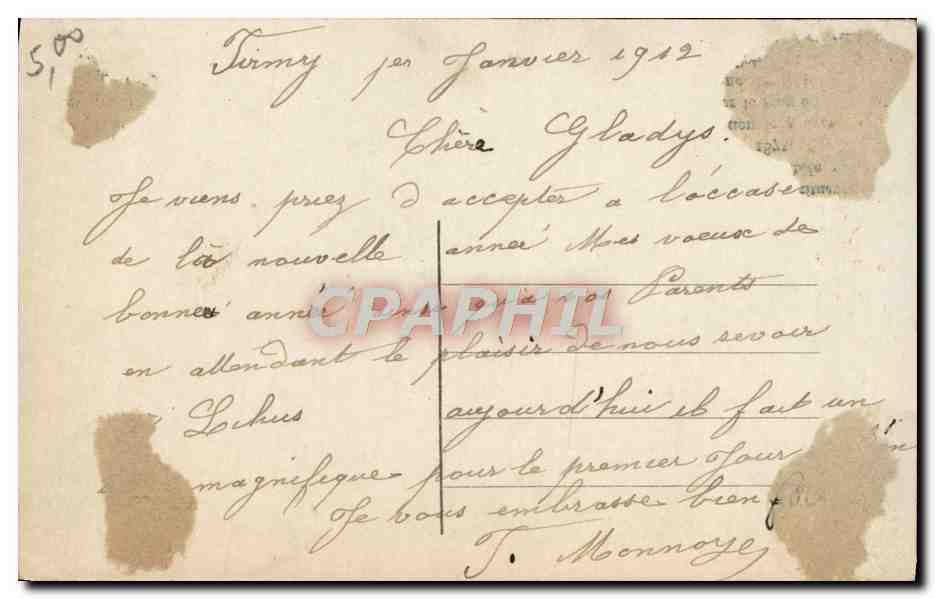 5,00
Firmy 1er Janvier 1912
Chère Gladys.
Je viens priez d accepter a l'óccase
de là nouvelle anneé Mes voeux de
bonneé anneé qu'a vos Parents
en attendant le plaisir de nous revoir
aujourd'hui il fait un
magnifique pour le premier Jour
Je vous embrasse bien
T. Monnoye
CPAPHIL